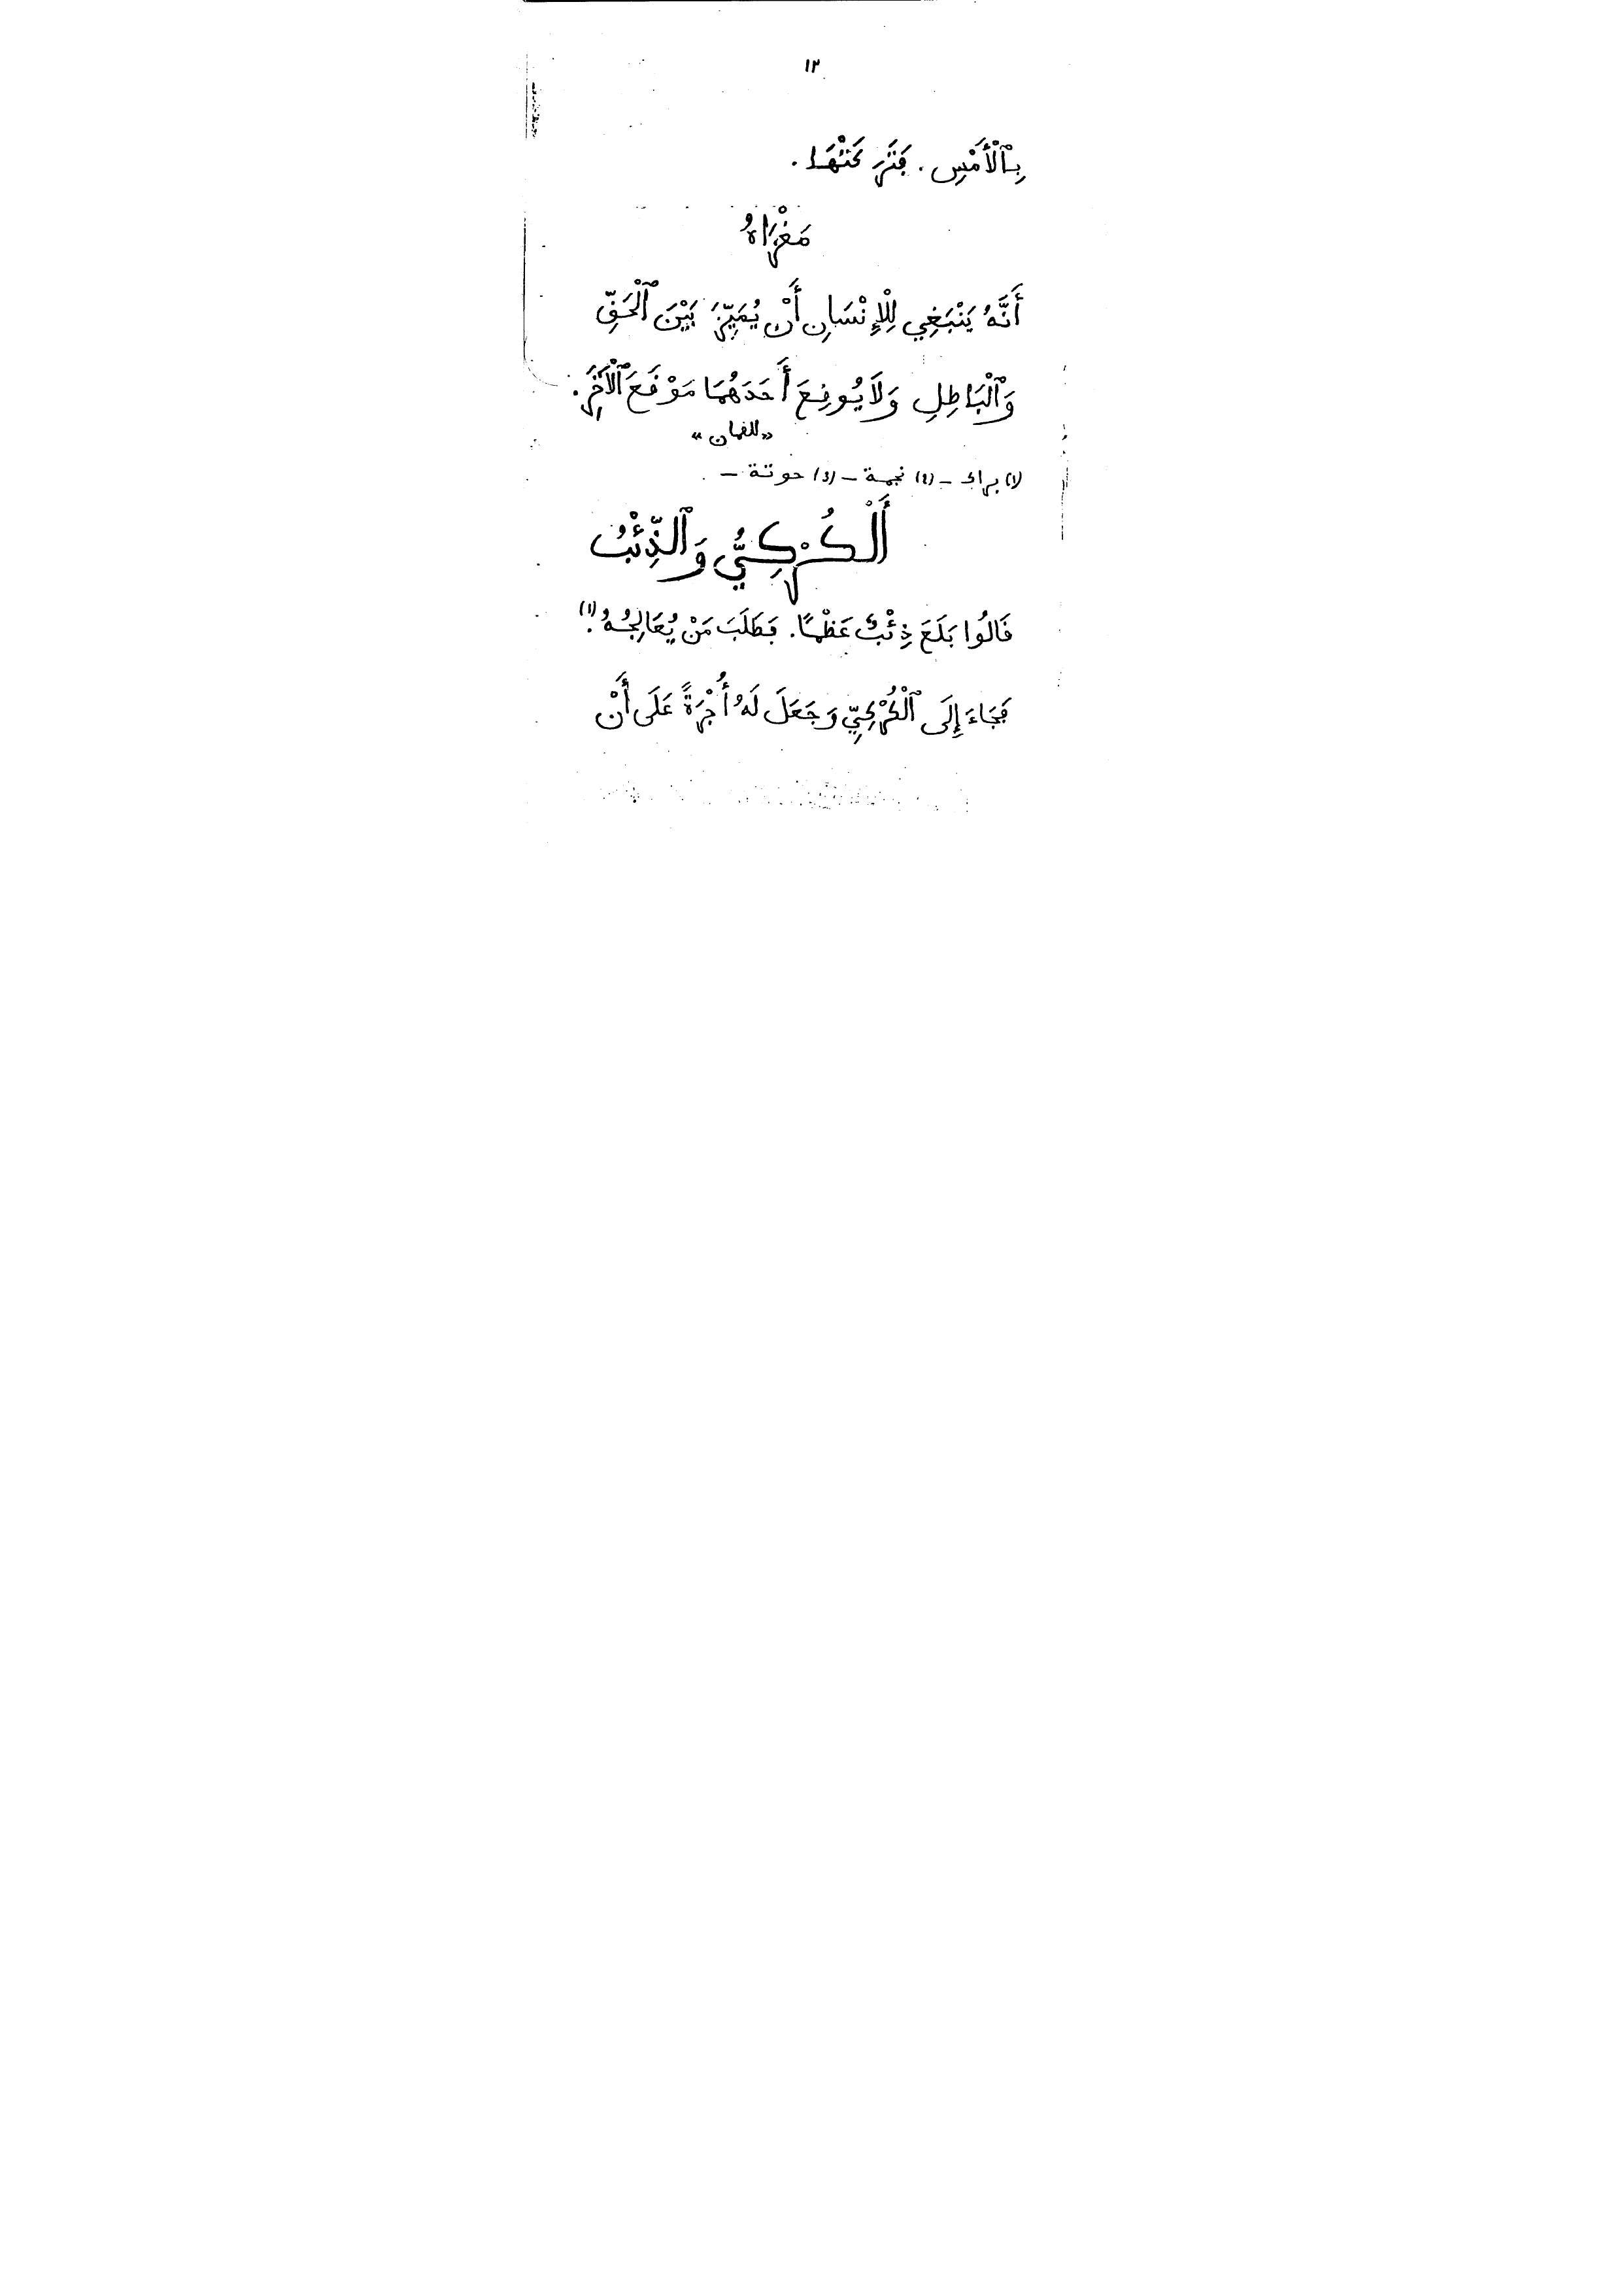 ١٢
بِٱلْأَمْسِ . فَتَرَكَتْهَا .
مَغْزَاهُ
أَنَّهُ يَنْبَغِي لِلْإِنْسَانِ أَنْ يُمَيِّزَ بَيْنَ ٱلْحَقِّ
وَٱلْبَاطِلِ وَلَا يُوقِعَ أَحَدَهُمَا مَوْقَعَ ٱلْآخَرِ .
«للقمان»
(1) براك – (2) نجمة – (3) حوتة –
أَلْكُرْكِيُّ وَٱلذِّئْبُ
قَالُوا بَلَعَ ذِئْبٌ عَظْمًا . فَطَلَبَ مَنْ يُعَالِجُهُ (1) .
فَجَاءَ إِلَى ٱلْكُرْكِيِّ وَجَعَلَ لَهُ أُجْرَةً عَلَى أَنْ